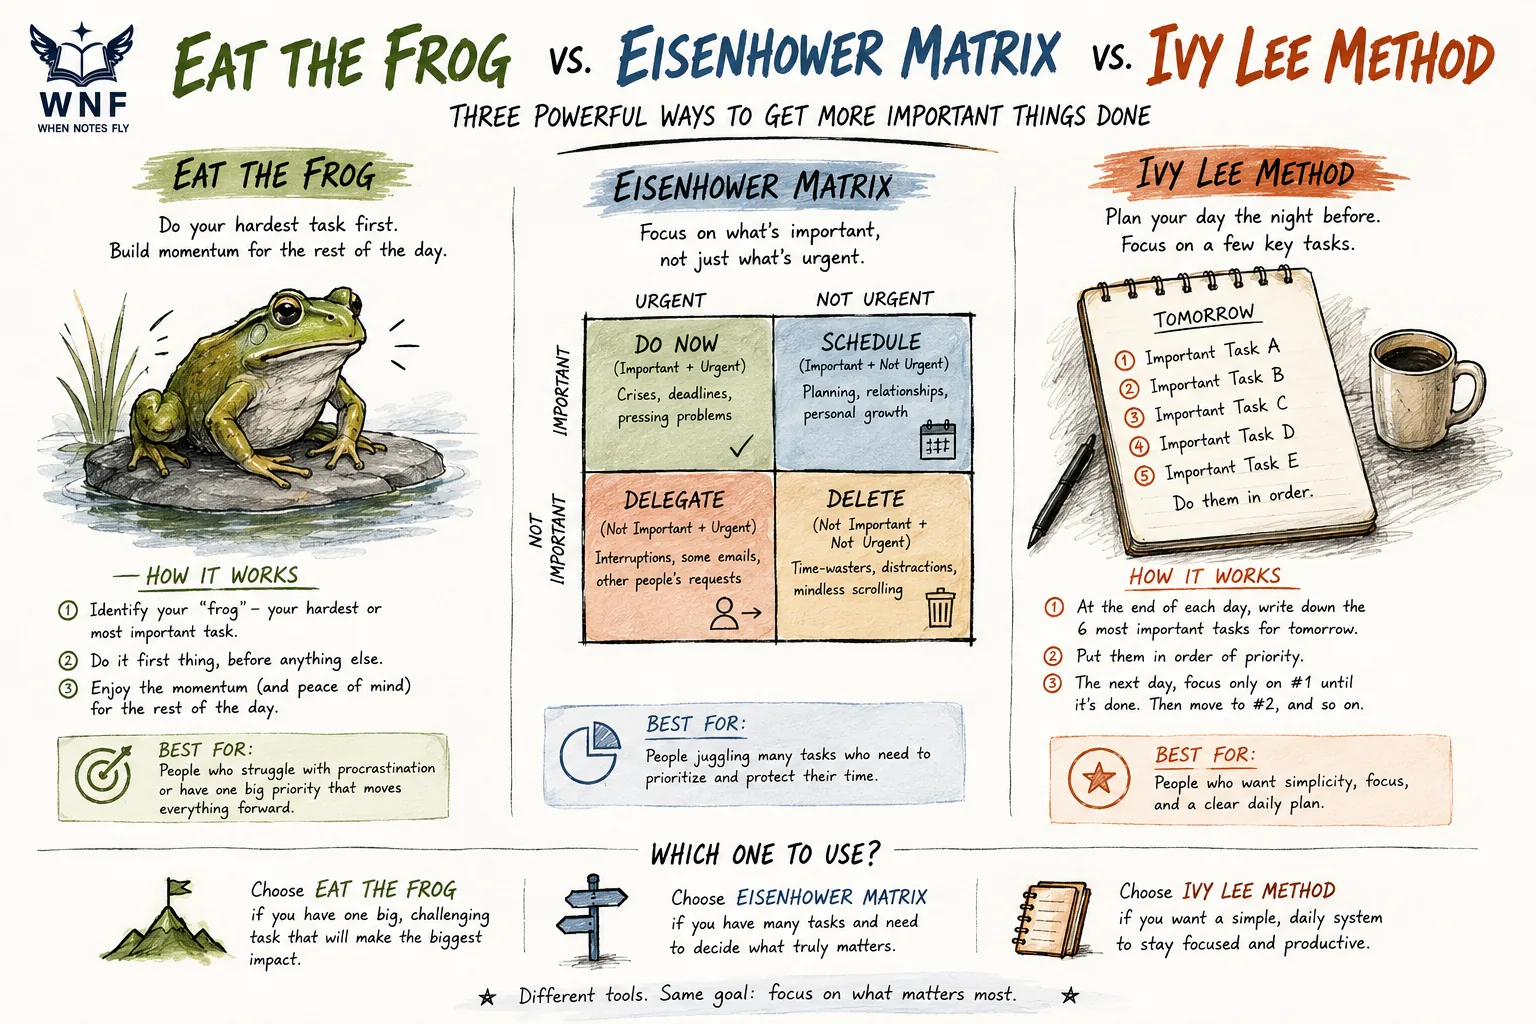 WNF
WHEN NOTES FLY
EAT THE FROG VS. EISENHOWER MATRIX VS. IVY LEE METHOD
THREE POWERFUL WAYS TO GET MORE IMPORTANT THINGS DONE
EAT THE FROG
Do your hardest task first.
Build momentum for the rest of the day.
HOW IT WORKS
1 Identify your "frog" – your hardest or
most important task.
2 Do it first thing, before anything else.
3 Enjoy the momentum (and peace of mind)
for the rest of the day.
BEST FOR:
People who struggle with procrastination
or have one big priority that moves
everything forward.
EISENHOWER MATRIX
Focus on what's important,
not just what's urgent.
URGENT
NOT URGENT
IMPORTANT
DO NOW
(Important + Urgent)
Crises, deadlines,
pressing problems
SCHEDULE
(Important + Not Urgent)
Planning, relationships,
personal growth
NOT
IMPORTANT
DELEGATE
(Not Important + Urgent)
Interruptions, some emails,
other people's requests
DELETE
(Not Important +
Not Urgent)
Time-wasters, distractions,
mindless scrolling
BEST FOR:
People juggling many tasks who need to
prioritize and protect their time.
IVY LEE METHOD
Plan your day the night before.
Focus on a few key tasks.
TOMORROW
1 Important Task A
2 Important Task B
3 Important Task C
4 Important Task D
5 Important Task E
Do them in order.
HOW IT WORKS
1 At the end of each day, write down the
6 most important tasks for tomorrow.
2 Put them in order of priority.
3 The next day, focus only on #1 until
it's done. Then move to #2, and so on.
BEST FOR:
People who want simplicity, focus,
and a clear daily plan.
WHICH ONE TO USE?
Choose EAT THE FROG
if you have one big, challenging
task that will make the biggest
impact.
Choose EISENHOWER MATRIX
if you have many tasks and need
to decide what truly matters.
Choose IVY LEE METHOD
if you want a simple, daily system
to stay focused and productive.
Different tools. Same goal: focus on what matters most.